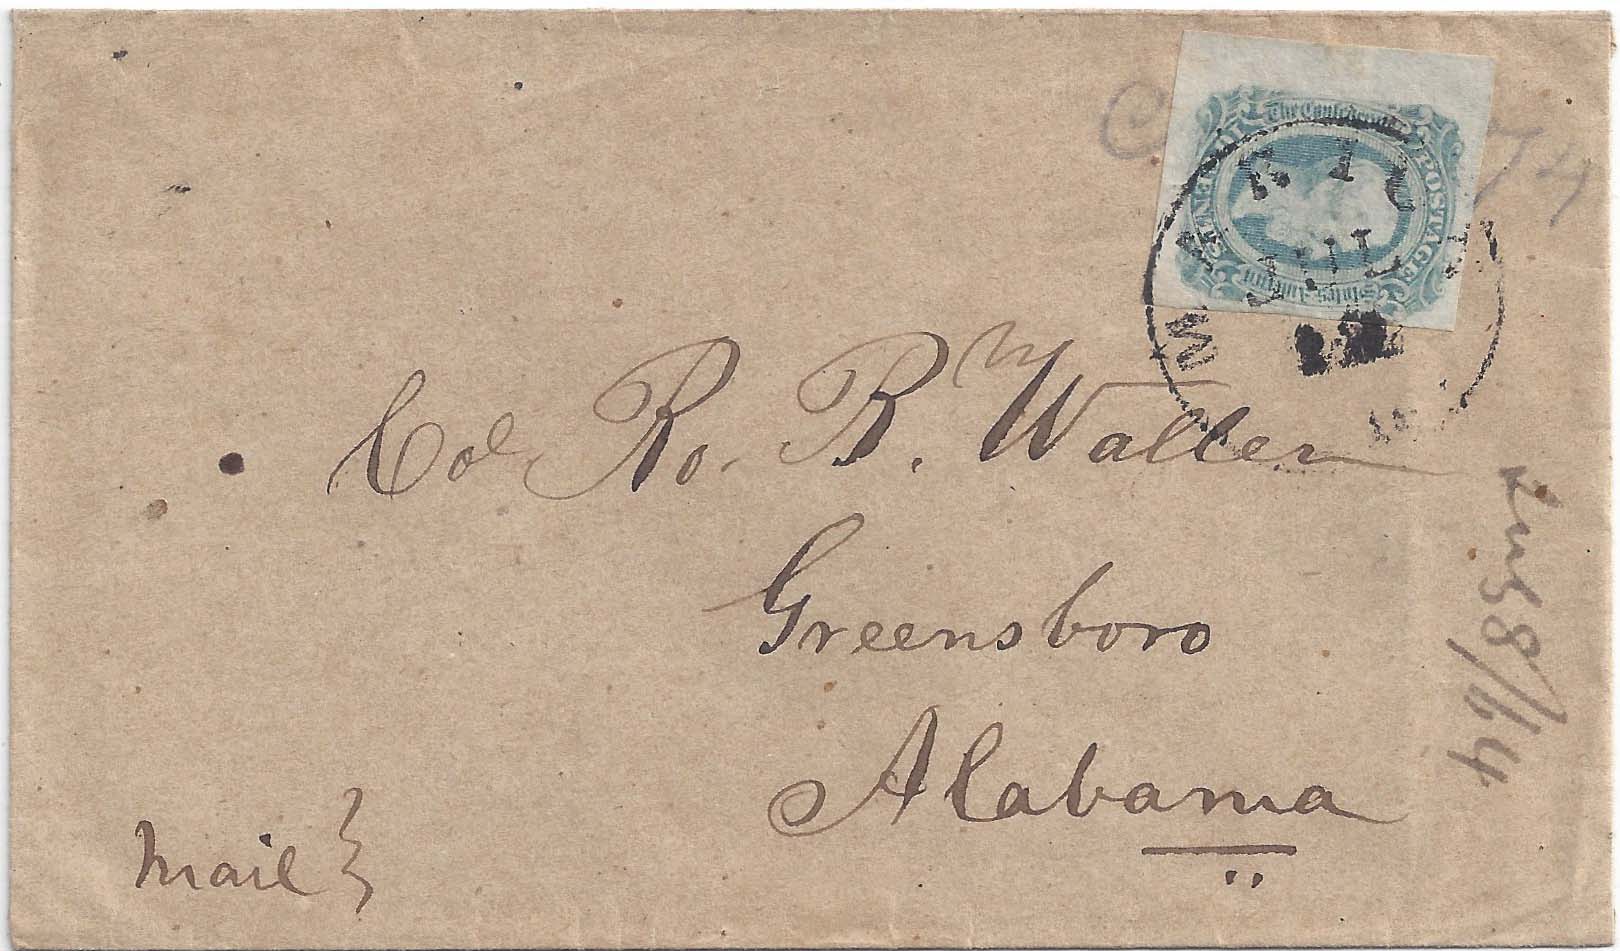 The Confederate
States America
POSTAGE
TEN
JUL
Col Ro. B. Waller
Greensboro
Alabama
Mail
8/64